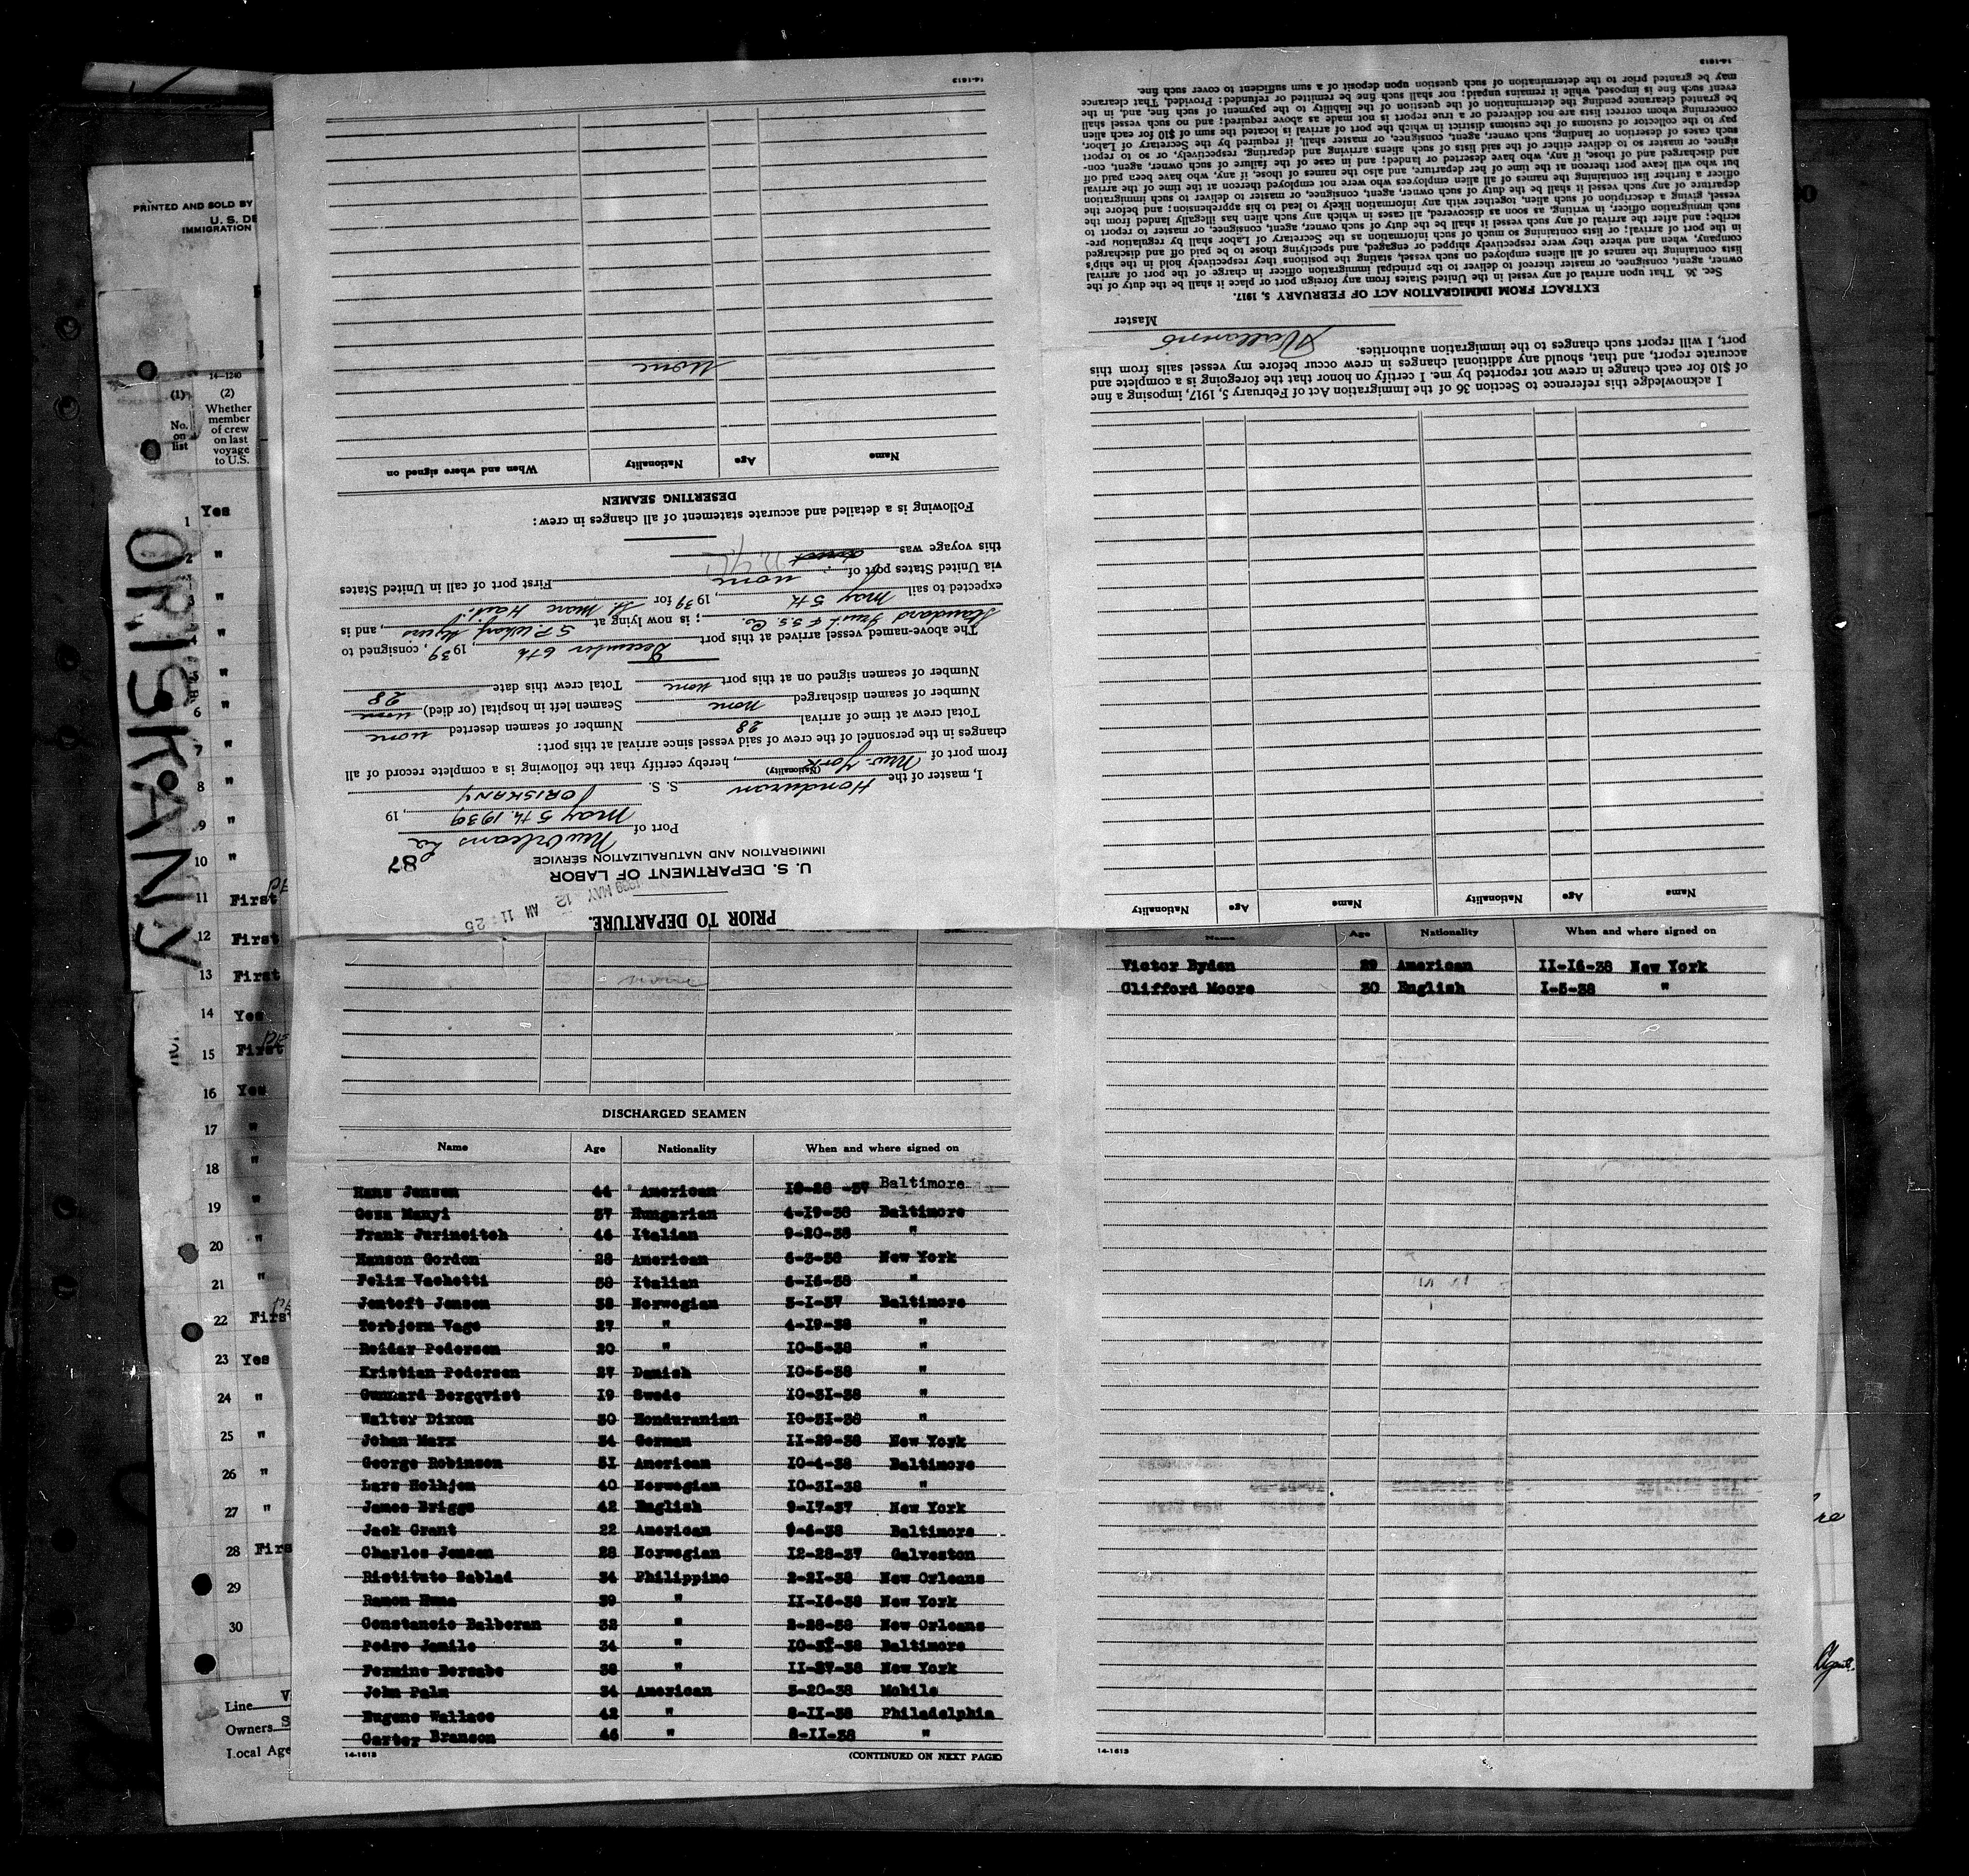 PRINTED AND SOLD BY
U. S. DE
IMMIGRATION
14-1240
(1) (2)
No. on list
Whether member of crew on last voyage to U.S.
1 Yes
2 "
3 "
4 "
5 "
6 "
7 "
8 "
9 "
10 "
11 First
12 First
13 First
14 Yes
15 First
16 Yes
17 "
18 "
19 "
20 "
21 "
22 Firs
23 Yes
24 "
25 "
26 "
27 "
28 Firs
29
30
Line
Owners S
Local Age
ORISKANY
PRIOR TO DEPARTURE.
1939 MAY 12 AM 11:25
U. S. DEPARTMENT OF LABOR
IMMIGRATION AND NATURALIZATION SERVICE
87
Port of New Orleans La
May 5th, 1939, 19
I, master of the Honduran S. S. ORISKANY
(Nationality)
from port of New York, hereby certify that the following is a complete record of all
changes in the personnel of the crew of said vessel since arrival at this port:
Total crew at time of arrival 28 Number of seamen deserted none
Number of seamen discharged none Seamen left in hospital (or died) none
Number of seamen signed on at this port none Total crew this date 28
The above-named vessel arrived at this port December 6th, 1939, consigned to
Standard Fruit & S.S. Co.; is now lying at S.P. Wharf, and is
expected to sail May 5th, 1939 for St Marc Haiti
via United States port of none First port of call in United States
this voyage was
Following is a detailed and accurate statement of all changes in crew:
DESERTING SEAMEN
Name Age Nationality When and where signed on
None
14-1613
Name Age Nationality Name Age Nationality
I acknowledge this reference to Section 36 of the Immigration Act of February 5, 1917, imposing a fine
of $10 for each change in crew not reported by me. I certify on honor that the foregoing is a complete and
accurate report, and that, should any additional changes in crew occur before my vessel sails from this
port, I will report such changes to the immigration authorities.
Master
EXTRACT FROM IMMIGRATION ACT OF FEBRUARY 5, 1917.
Sec. 36. That upon arrival of any vessel in the United States from any foreign port or place it shall be the duty of the
owner, agent, consignee, or master thereof to deliver to the principal immigration officer in charge of the port of arrival
lists containing the names of all aliens employed on such vessel, stating the positions they respectively hold in the ship's
company, when and where they were respectively shipped or engaged, and specifying those to be paid off and discharged
in the port of arrival; or lists containing so much of such information as the Secretary of Labor shall by regulation pre-
scribe; and after the arrival of any such vessel it shall be the duty of such owner, agent, consignee, or master to report to
such immigration officer, in writing, as soon as discovered, all cases in which any such alien has illegally landed from the
vessel, giving a description of such alien, together with any information likely to lead to his apprehension; and before the
departure of any such vessel it shall be the duty of such owner, agent, consignee, or master to deliver to such immigration
officer a further list containing the names of all alien employees who were not employed thereon at the time of the arrival
but who will leave port thereon at the time of her departure, and also the names of those, if any, who have been paid off
and discharged and of those, if any, who have deserted or landed; and in case of the failure of such owner, agent, con-
signee, or master so to deliver either of the said lists of such aliens arriving and departing, respectively, or so to report
such cases of desertion or landing, such owner, agent, consignee, or master shall, if required by the Secretary of Labor,
pay to the collector of customs of the customs district in which the port of arrival is located the sum of $10 for each alien
concerning whom correct lists are not delivered or a true report is not made as above required; and no such vessel shall
be granted clearance pending the determination of the question of the liability to the payment of such fine, and, in the
event such fine is imposed, while it remains unpaid; nor shall such fine be remitted or refunded: Provided, That clearance
may be granted prior to the determination of such question upon deposit of a sum sufficient to cover such fine.
14-1613
none
DISCHARGED SEAMEN
Name Age Nationality When and where signed on
Hans Jensen 44 American 10-28-37 Baltimore
Geza Manyi 37 Hungarian 4-19-38 Baltimore
Frank Jurincitch 46 Italian 9-20-38 "
Hanson Gordon 28 American 6-3-38 New York
Felix Vachetti 38 Italian 6-16-38 "
Jentoft Jensen 38 Norwegian 3-1-37 Baltimore
Torbjorn Vage 27 " 4-19-38 "
Reidar Pedersen 20 " 10-5-38 "
Kristian Pedersen 27 Danish 10-5-38 "
Gunnard Bergqvist 19 Swede 10-31-38 "
Walter Dixon 30 Honduranian 10-31-38 "
Johan Marx 34 German 11-29-38 New York
George Robinson 51 American 10-4-38 Baltimore
Lars Helhjem 40 Norwegian 10-31-38 "
James Briggs 42 English 9-17-37 New York
Jack Grant 22 American 9-6-38 Baltimore
Charles Jensen 28 Norwegian 12-28-37 Galveston
Ristituto Sablad 34 Philippino 2-21-38 New Orleans
Ramon 39 " 11-16-38 New York
Constancio Balberan 32 " 2-28-38 New Orleans
Pedro Jamilo 34 " 10-31-38 Baltimore
Fermine Bersabe 38 " 11-27-38 New York
John Palm 34 American 3-20-38 Mobile
Eugene Wallace 42 " 8-11-38 Philadelphia
Carter Branson 46 " 8-11-38 "
14-1613 (CONTINUED ON NEXT PAGE)
Name Age Nationality When and where signed on
Victor Ryden 29 American 11-16-38 New York
Clifford Moore 30 English 1-5-38 "
14-1613